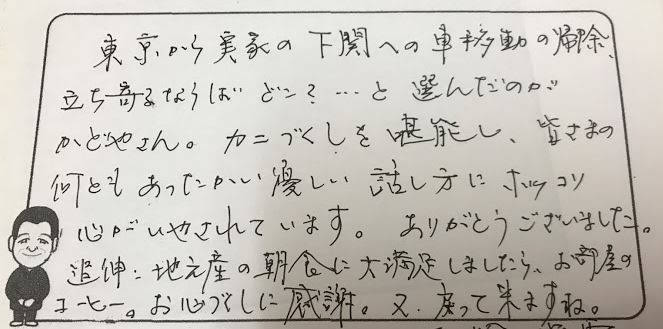 東京から実家の下関への車移動の帰除、
立ち寄るならば どこ？…と 選んだのが
かどやさん。カニづくしを堪能し、皆さまの
何とも あったかい優しい 話し方に ホッコリ
心がいやされています。 ありがとうございました。
追伸：地元産の朝食に大満足しましたら、お部屋の
コーヒー。お心づくしに感謝。又、戻って来ますね。